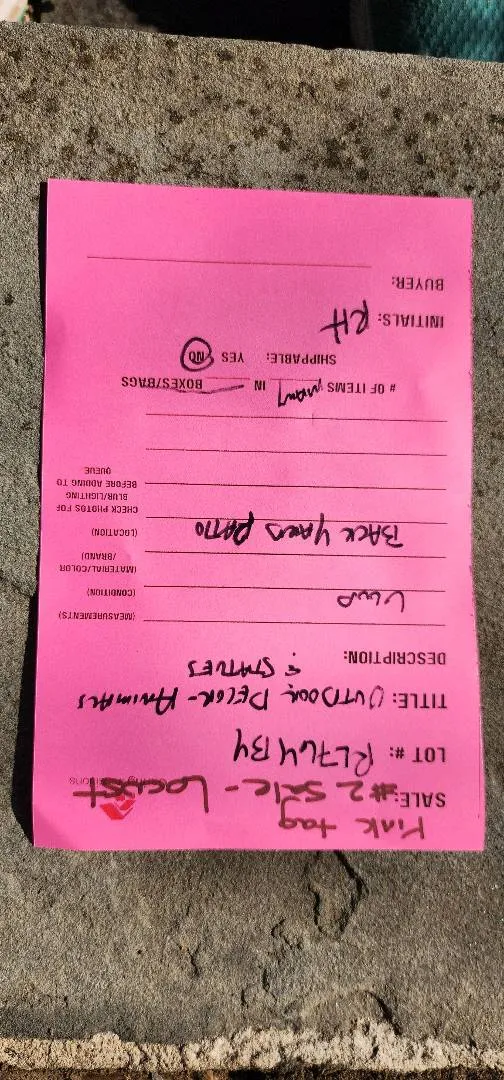 Pink tag
SALE: #2 Sale - Locust
LOT #: RL764B4
TITLE: OUTDOOR DECOR - ANIMALS
& STATUES
DESCRIPTION:
(MEASUREMENTS)
(CONDITION)
(MATERIAL/COLOR
/BRAND)
BACK YARD PATIO (LOCATION)
CHECK PHOTOS FOR
BLUR/LIGHTING
BEFORE ADDING TO
QUEUE
# OF ITEMS MANY IN BOXES/BAGS
SHIPPABLE: YES NO
INITIALS: RH
BUYER: